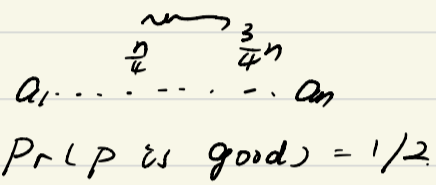 n/4 3/4 n
a₁ . . . . . . - - . . - . aₙ
Pr(p is good) = 1/2